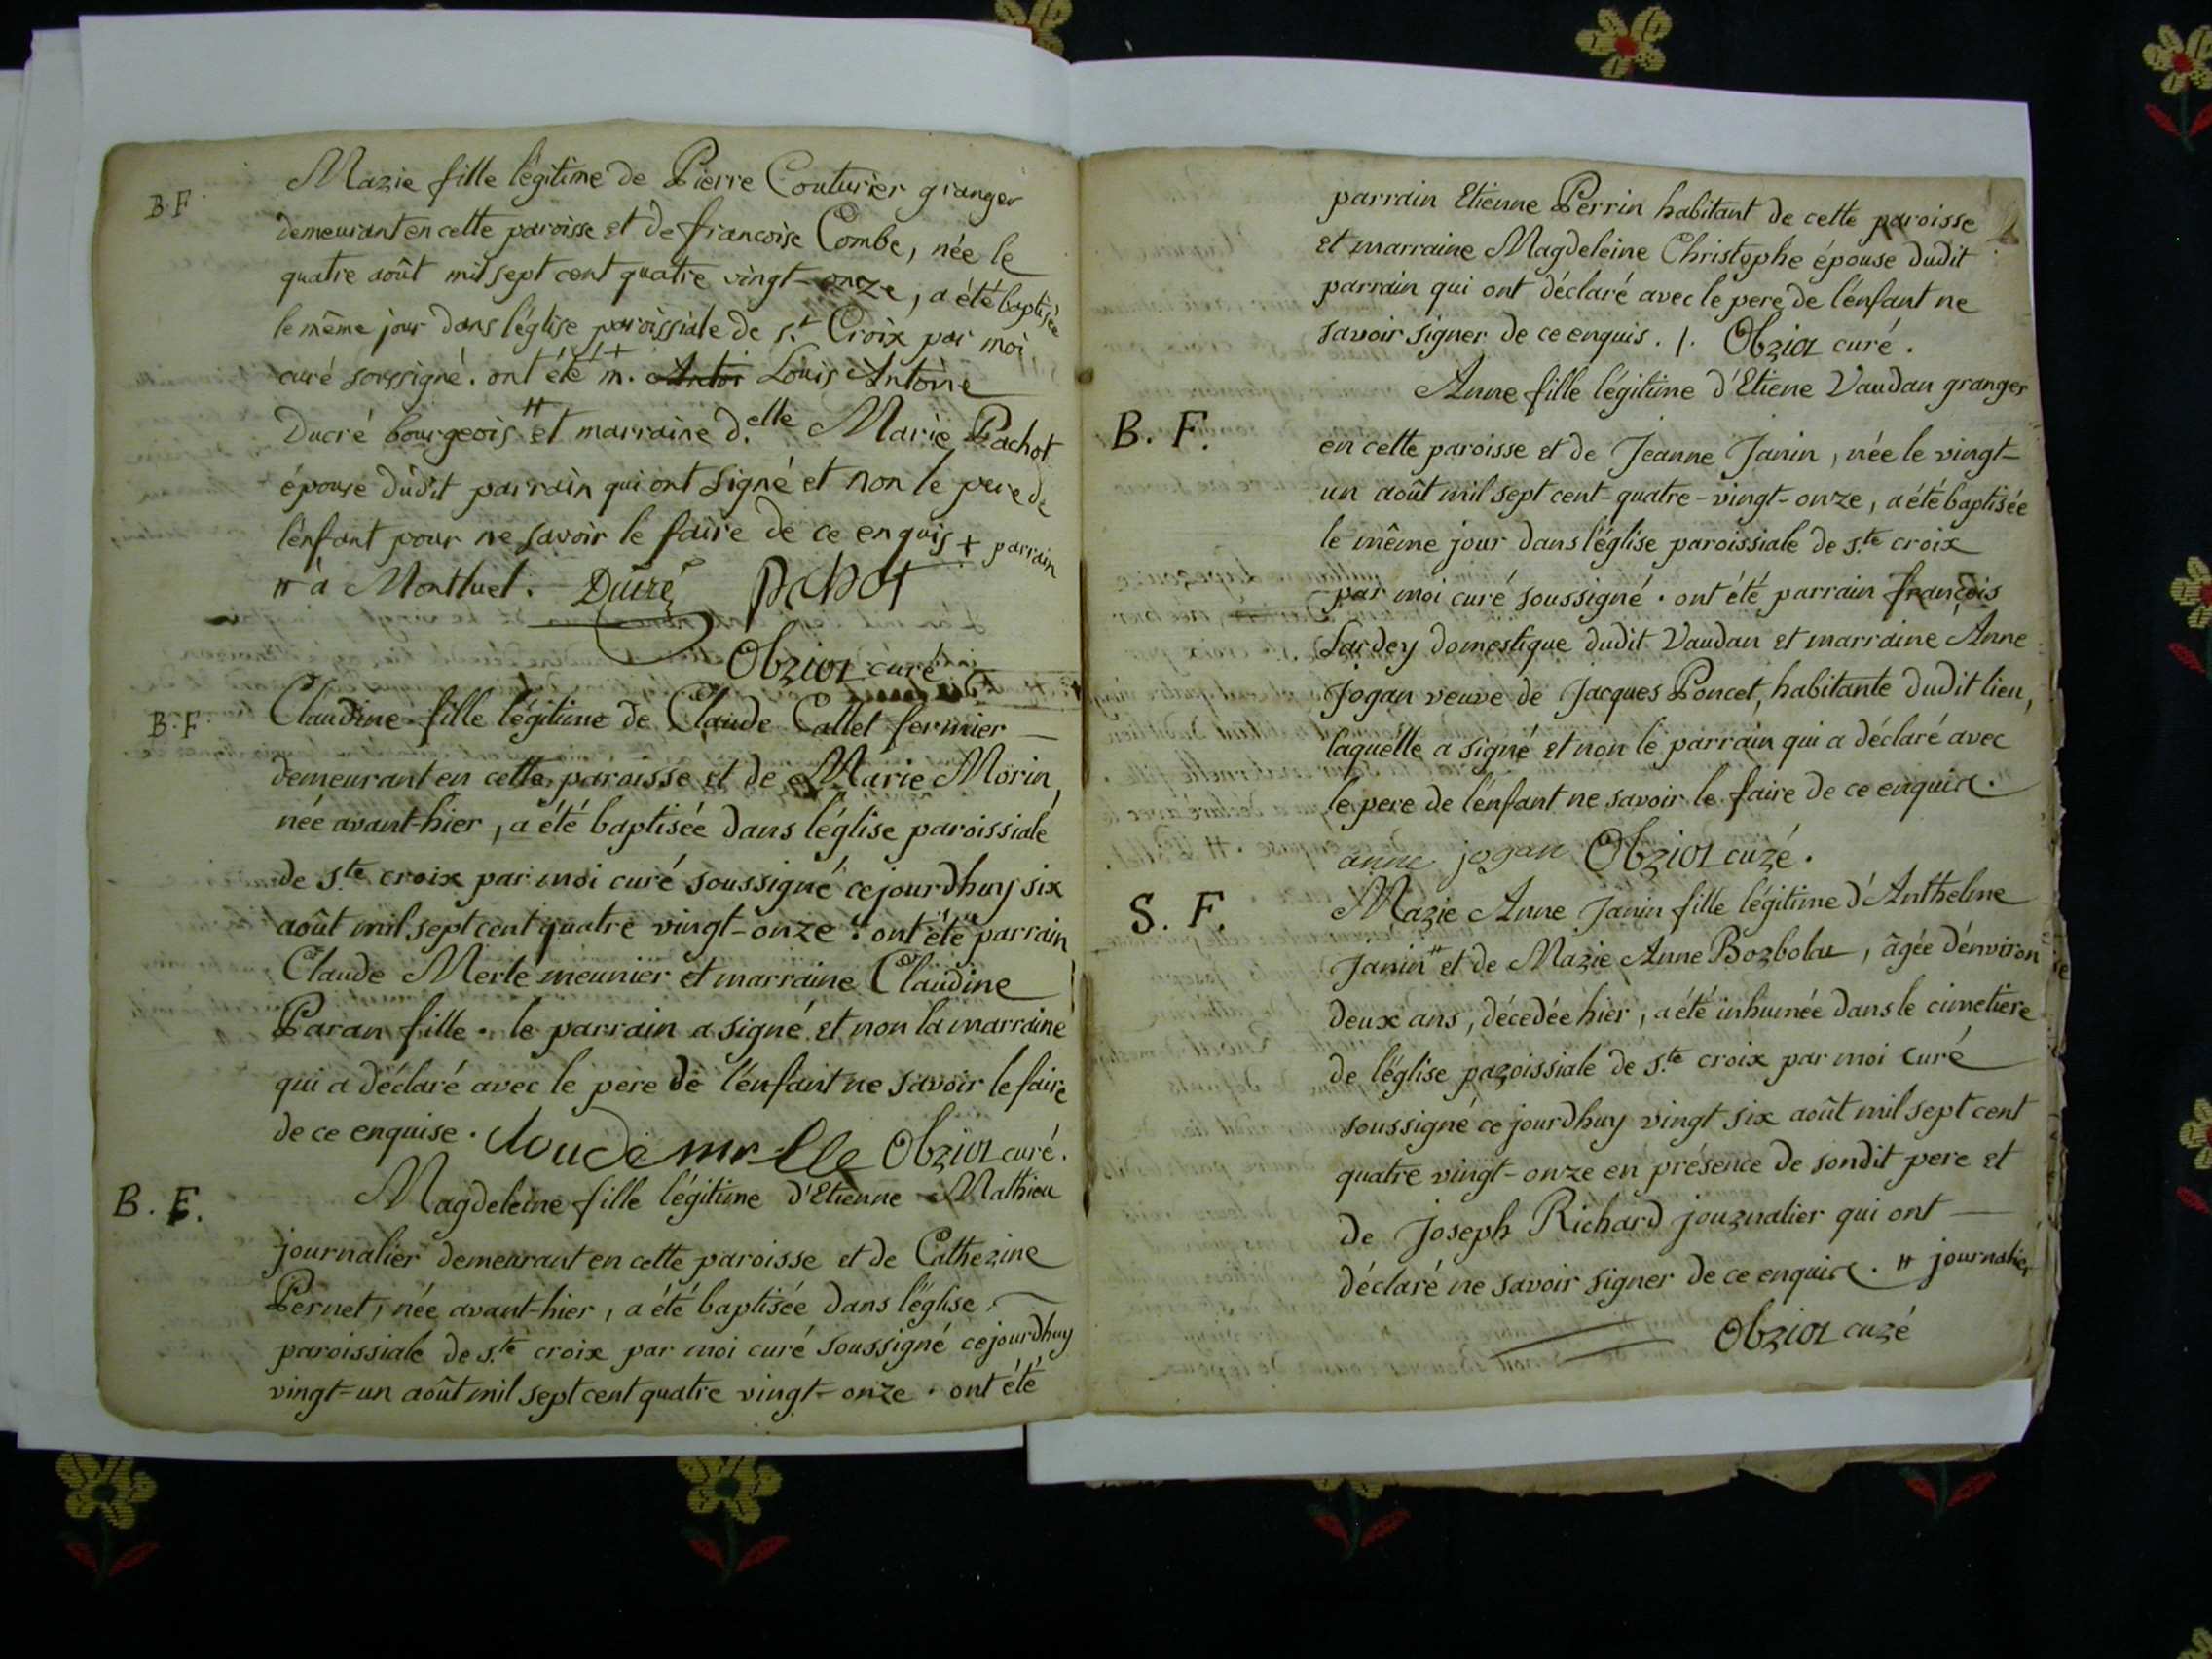 B.F.
Marie fille légitime de Pierre Couturier granger
demeurant en cette paroisse et de francoise Combe, née le
quatre août mil sept cent quatre vingt-onze, a été baptisée
le même jour dans l'église paroissiale de s.te Croix par moi
curé soussigné. ont été + m. Antoi Louis Antoine
Ducré bourgeois # et marraine d.elle Marie Pachot
épouse dudit parrain qui ont signé et non le pere de
l'enfant pour ne savoir le faire de ce enquis + parrain
# à Montluel. Ducré pachot
Obrier curé
B.F.
Claudine fille légitime de Claude Callet fermier
demeurant en cette paroisse et de Marie Morin,
née avant-hier, a été baptisée dans l'église paroissiale
de s.te croix par moi curé soussigné cejourdhuy six
août mil sept cent quatre vingt-onze. ont été parrain
Claude Merle meunier et marraine Claudine
Paran fille. le parrain a signé et non la marraine
qui a déclaré avec le pere de l'enfant ne savoir le faire
de ce enquise. Obrier curé.
B. F.
Magdeleine fille légitime d'Etienne Mathieu
journalier demeurant en cette paroisse et de Catherine
Pernet, née avant-hier, a été baptisée dans l'église
paroissiale de s.te croix par moi curé soussigné cejourdhuy
vingt-un août mil sept cent quatre vingt-onze. ont été
parrain Etienne Perrin habitant de cette paroisse
et marraine Magdeleine Christophe épouse dudit
parrain qui ont déclaré avec le pere de l'enfant ne
savoir signer de ce enquis. /. Obrier curé.
B. F.
Anne fille légitime d'Etiene Vaudan granger
en cette paroisse et de Jeanne Janin, née le vingt-
un août mil sept cent-quatre-vingt-onze, a été baptisée
le même jour dans l'église paroissiale de s.te croix
par moi curé soussigné. ont été parrain françois
Lardey domestique dudit Vaudan et marraine Anne
Jogan veuve de Jacques Poncet, habitante dudit lieu,
laquelle a signé et non le parrain qui a déclaré avec
le pere de l'enfant ne savoir le faire de ce enquis.
anne jogan Obrier curé.
S. F.
Marie Anne Janin fille légitime d'Anthelme
Janin # et de Marie Anne Borbolat, âgée d'environ
deux ans, décédée hier, a été inhumée dans le cimetiere
de l'église paroissiale de s.te croix par moi curé
soussigné ce jourdhuy vingt six août mil sept cent
quatre vingt-onze en présence de sondit pere et
de Joseph Richard journalier qui ont
déclaré ne savoir signer de ce enquis. # journalier
Obrier curé